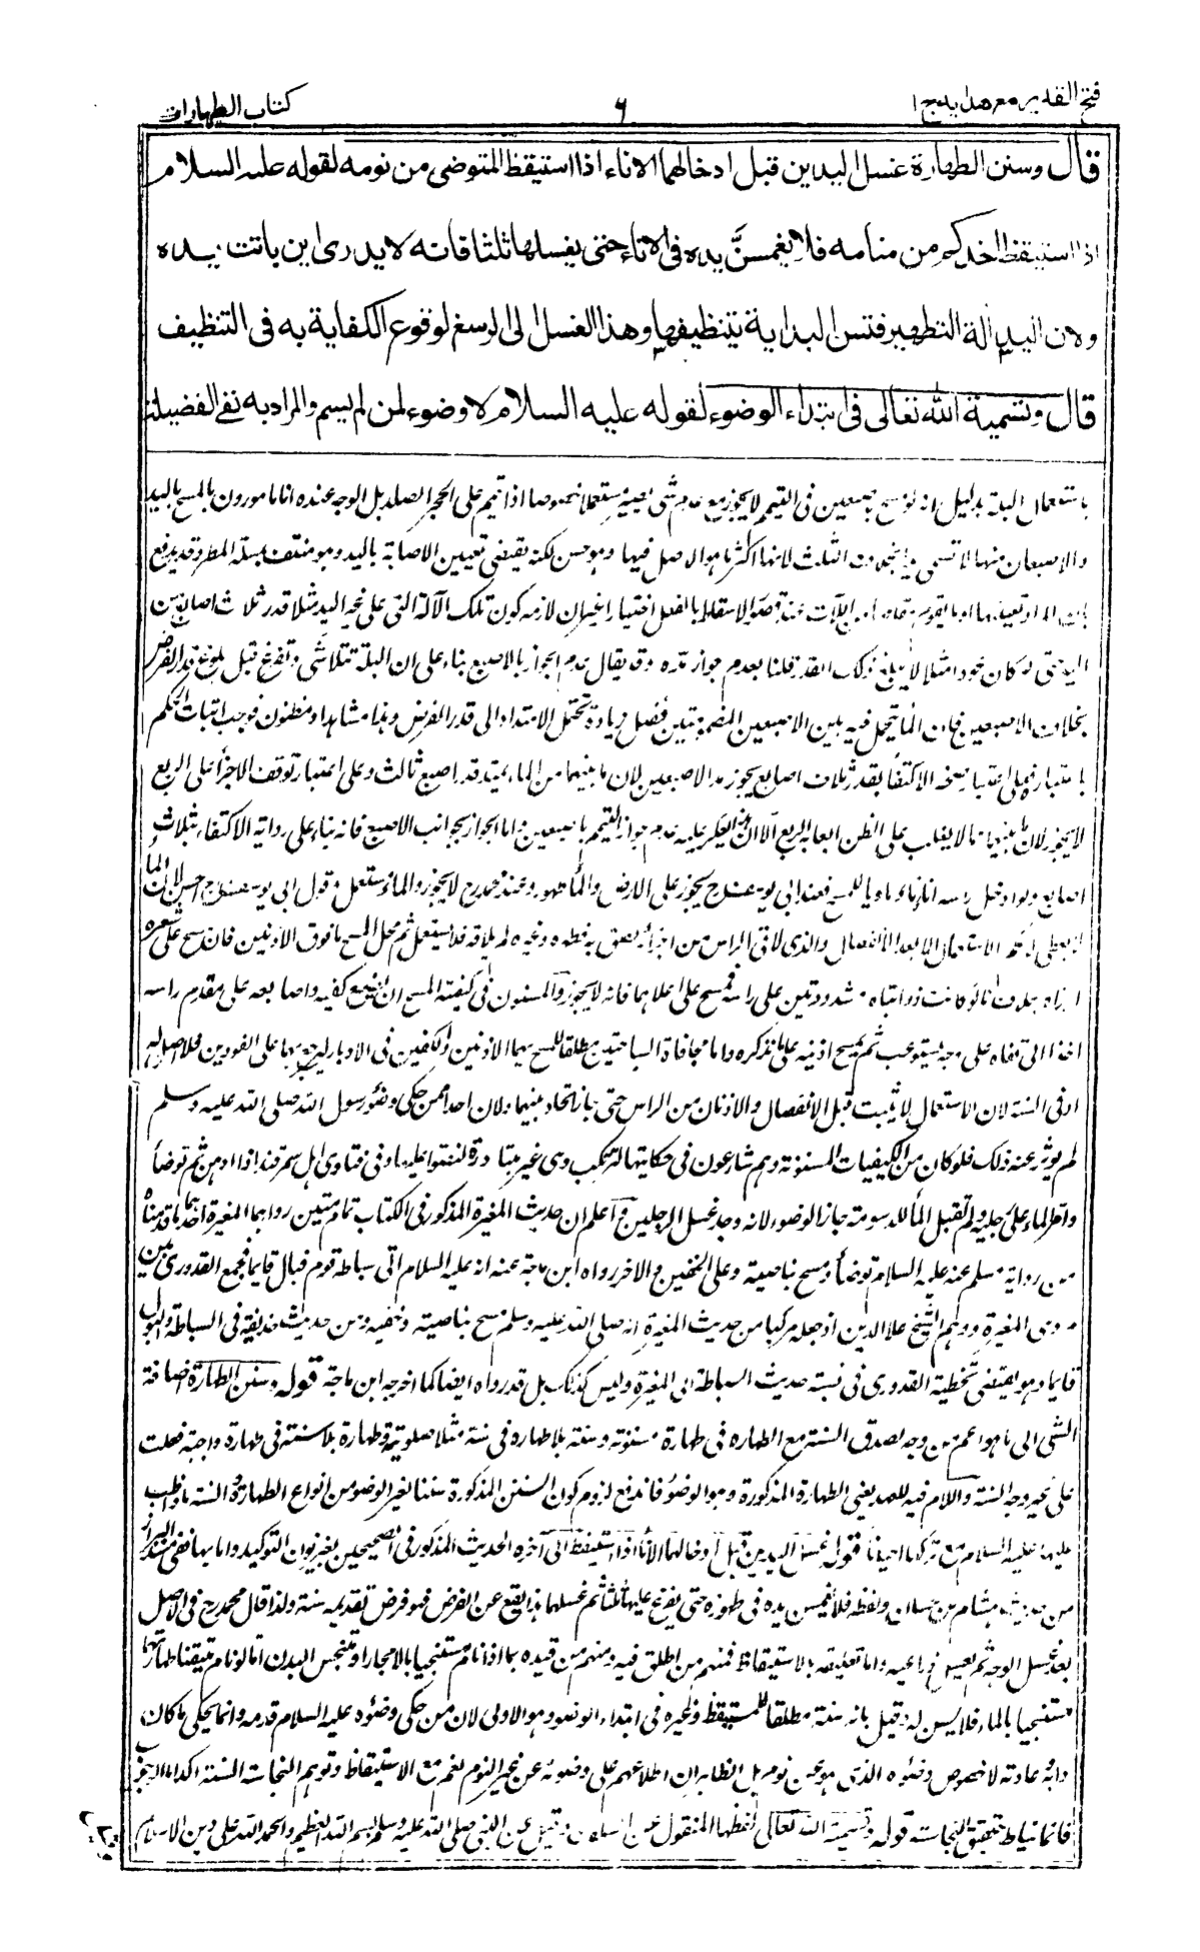 فتح القدير مع هدايه ج ا
٦
كتاب الطهارات
قال وسنن الطهارة غسل اليدين قبل ادخالهما الاناء اذا استيقظ المتوضى من نومه لقوله عليه السلام
اذا استيقظ احدكم من منامه فلا يغمسنَّ يده فى الاناء حتى يغسلها ثلثا فانه لا يدرى اين باتت يده
ولان اليد آلة التطهير فتسن البداية بتنظيفها وهذا الغسل الى الرسغ لوقوع الكفاية به فى التنظيف
قال وتسمية الله تعالى فى ابتداء الوضوء لقوله عليه السلام لا وضوء لمن لم يسم والمراد به نفى الفضيلة
باستعمال البلة بدليل انه لو مسح باصبعين فى التيمم لا يجوز مع عدم شئ يصير مستعملا خصوصا اذا تيمم على الحجر الصلد بل الوجه عنده انا مامورون بالمسح باليد
والاصبعان منها لا تسمى يدا بخلاف الثلث لانها اكثر ما هو الاصل فيها وهو حسن لكنه يقتضى تعيين الاصابة باليد وهو منتف بمسئلة المطر وقد يدفع
بان المراد تعيينها او ما يقوم مقامها من الآلات عند قصد الاسقاط بالفعل اختيارا غير ان لازمه كون تلك الآلة التى هى غير اليد مثلا قدر ثلاث اصابع من
اليد حتى لو كان عودا مثلا لا يبلغ ذلك القدر قلنا بعدم جواز مده وقد يقال عدم الجواز بالاصبع بناء على ان البلة تتلاشى وتفرغ قبل بلوغ قدر الفرض
بخلاف الاصبعين فان الماء يتحمل فيه بين الاصبعين المضمومتين فضل زيادة تحتمل الامتداد الى قدر الفرض وهذا مشاهد او مظنون فوجب اثبات الحكم
باعتباره فعلى اعتبار صحة الاكتفاء بقدر ثلاث اصابع يجوز مد الاصبعين لان ما بينهما من الماء يمتد قدر اصبع ثالث وعلى اعتبار توقف الاجزاء على الربع
لا يجوز لان ما بينهما مما لا يغلب على الظن ايعابه الربع الا ان هذا يعكر عليه عدم جواز التيمم باصبعين واما الجواز بجوانب الاصبع فانه بناء على رواية الاكتفاء بثلاث
اصابع ولو ادخل راسه اناء ماء ناويا للمسح فعند ابى يوسف رح يجوز على الارض والماء طهور وعند محمد رح لا يجوز والماء مستعمل وقول ابى يوسف رح احسن لان الماء
لا يعطى له حكم الاستعمال الا بعد الانفصال والذى لاقى الراس من اجزائه لصق به فطهره وغيره لم يلاقه فلا يستعمل ثم محل المسح ما فوق الاذنين فان مسح على شعره
اجزاه بخلاف ما لو كانت ذوائباه مشدودتين على راسه فمسح على اعلاهما فانه لا يجوز والمسنون فى كيفية المسح ان يضع كفيه واصابعه على مقدم راسه
اخذا الى قفاه على وجه يستوعب ثم يمسح اذنيه على ما نذكره واما مجافاة السباحتين مطلقا ليمسح بهما الاذنين والكفين فى الادبار ليرجع بهما على الفودين فلا اصل له
فى السنة لان الاستعمال لا يثبت قبل الانفصال والاذنان من الراس حتى جاز اتحاد بلتهما ولان احدا ممن حكى وضوء رسول الله صلى الله عليه وسلم
لم يؤثر عنه ذلك فلو كان من الكيفيات المسنونة وهم شارعون فى حكايتها لترتكب وهى غير متبادرة لنصوا عليها وفى فتاوى اهل سمرقند اذا دهن ثم توضأ
وامر الماء على رجليه ولم تقبل الماء للدسومة جاز الوضوء لانه وجد غسل الرجلين واعلم ان حديث المغيرة المذكور فى الكتاب تمام متنين رواهما المغيرة احدهما ما قدمناه
من رواية مسلم عنه عليه السلام توضأ ومسح بناصيته وعلى الخفين والاخر رواه ابن ماجة عنه انه عليه السلام اتى سباطة قوم فبال قايما فجمع القدورى بين
مروى المغيرة ووهم الشيخ علاء الدين اذ جعله مركبا من حديث المغيرة انه صلى الله عليه وسلم مسح بناصيته وخفيه ومن حديث حذيفة فى السباطة والبول
قايما وهو يقتضى تخطية القدورى فى نسبة حديث السباطة الى المغيرة وليس كذلك بل قد رواه ايضا كما اخرجه ابن ماجة قوله وسنن الطهارة اضافة
الشئ الى ما هو اعم من وجه لصدق السنة مع الطهارة فى طهارة مسنونة وسنة بلا طهارة فى سنة مثلا صلوتية وطهارة بلا سنة فى طهارة واجبة فعلت
على غير وجه السنة واللام فيه للعهد يعنى الطهارة المذكورة وهو الوضوء فاندفع لزوم كون السنن المذكورة سننا لغير الوضوء من انواع الطهارة والسنة ما واظب
عليها عليه السلام مع تركها احيانا قوله غسل اليدين قبل ادخالهما الاناء اذا استيقظ الى آخره الحديث المذكور فى الصحيحين بغير نون التوكيد واما بها ففى مسند البزار
من حديث هشام بن حسان ولفظه فلا يغمسن يده فى طهوره حتى يفرغ عليها ثلثا ثم غسلهما هذا يقع عن الفرض فهو فرض تقديمه سنة ولذا قال محمد رح فى الاصل
بعد غسل الوجه ثم يغسل ذراعيه واما تعليقه بالاستيقاظ فمنهم من اطلق فيه ومنهم من قيده بما اذا نام مستنجيا بالاحجار او متنجس البدن اما لو نام متيقنا طهارتهما
مستنجيا بالماء فلا يسن له وقيل بانه سنة مطلقا للمستيقظ وغيره فى ابتداء الوضوء وهو الاولى لان من حكى وضوئه عليه السلام قدمه وانما يحكى ما كان
دابه وعادته لا خصوص وضوئه الذى هو عن نوم بل الظاهر ان اطلاعهم على وضوئه عن غير النوم نعم مع الاستيقاظ وتوهم النجاسة السنة آكد
فانما يناط بتحقق النجاسة قوله وتسمية الله تعالى لفظها المنقول عن السلف وقيل عن النبى صلى الله عليه وسلم بسم الله العظيم والحمد لله على دين الاسلام